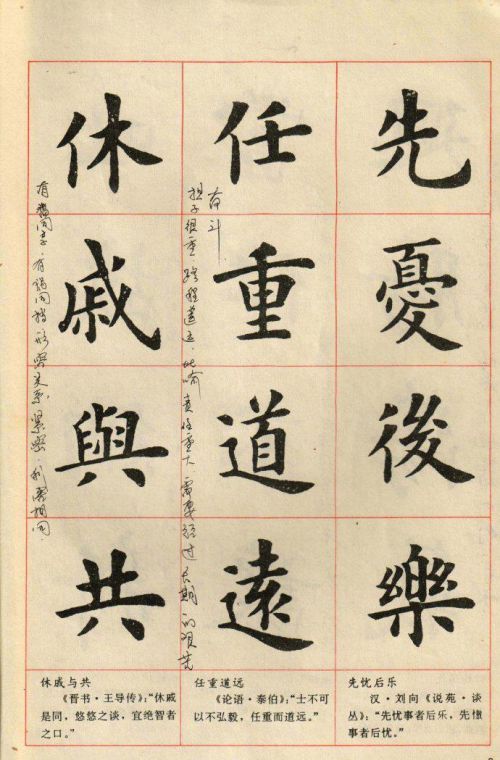 先憂後樂
任重道遠
奋斗
担子很重.路程遥远.比喻责任重大.需要经过长期的艰
休戚與共
有福同享.有祸同 形容关系紧密.利害相同.
先忧后乐
汉·刘向《说苑·谈
丛》：“先忧事者后乐，先
事者后忧。”
任重道远
《论语·泰伯》：“士不可
以不弘毅，任重而道远。”
休戚与共
《晋书·王导传》：“休戚
是同，悠悠之谈，宜绝智者
之口。”